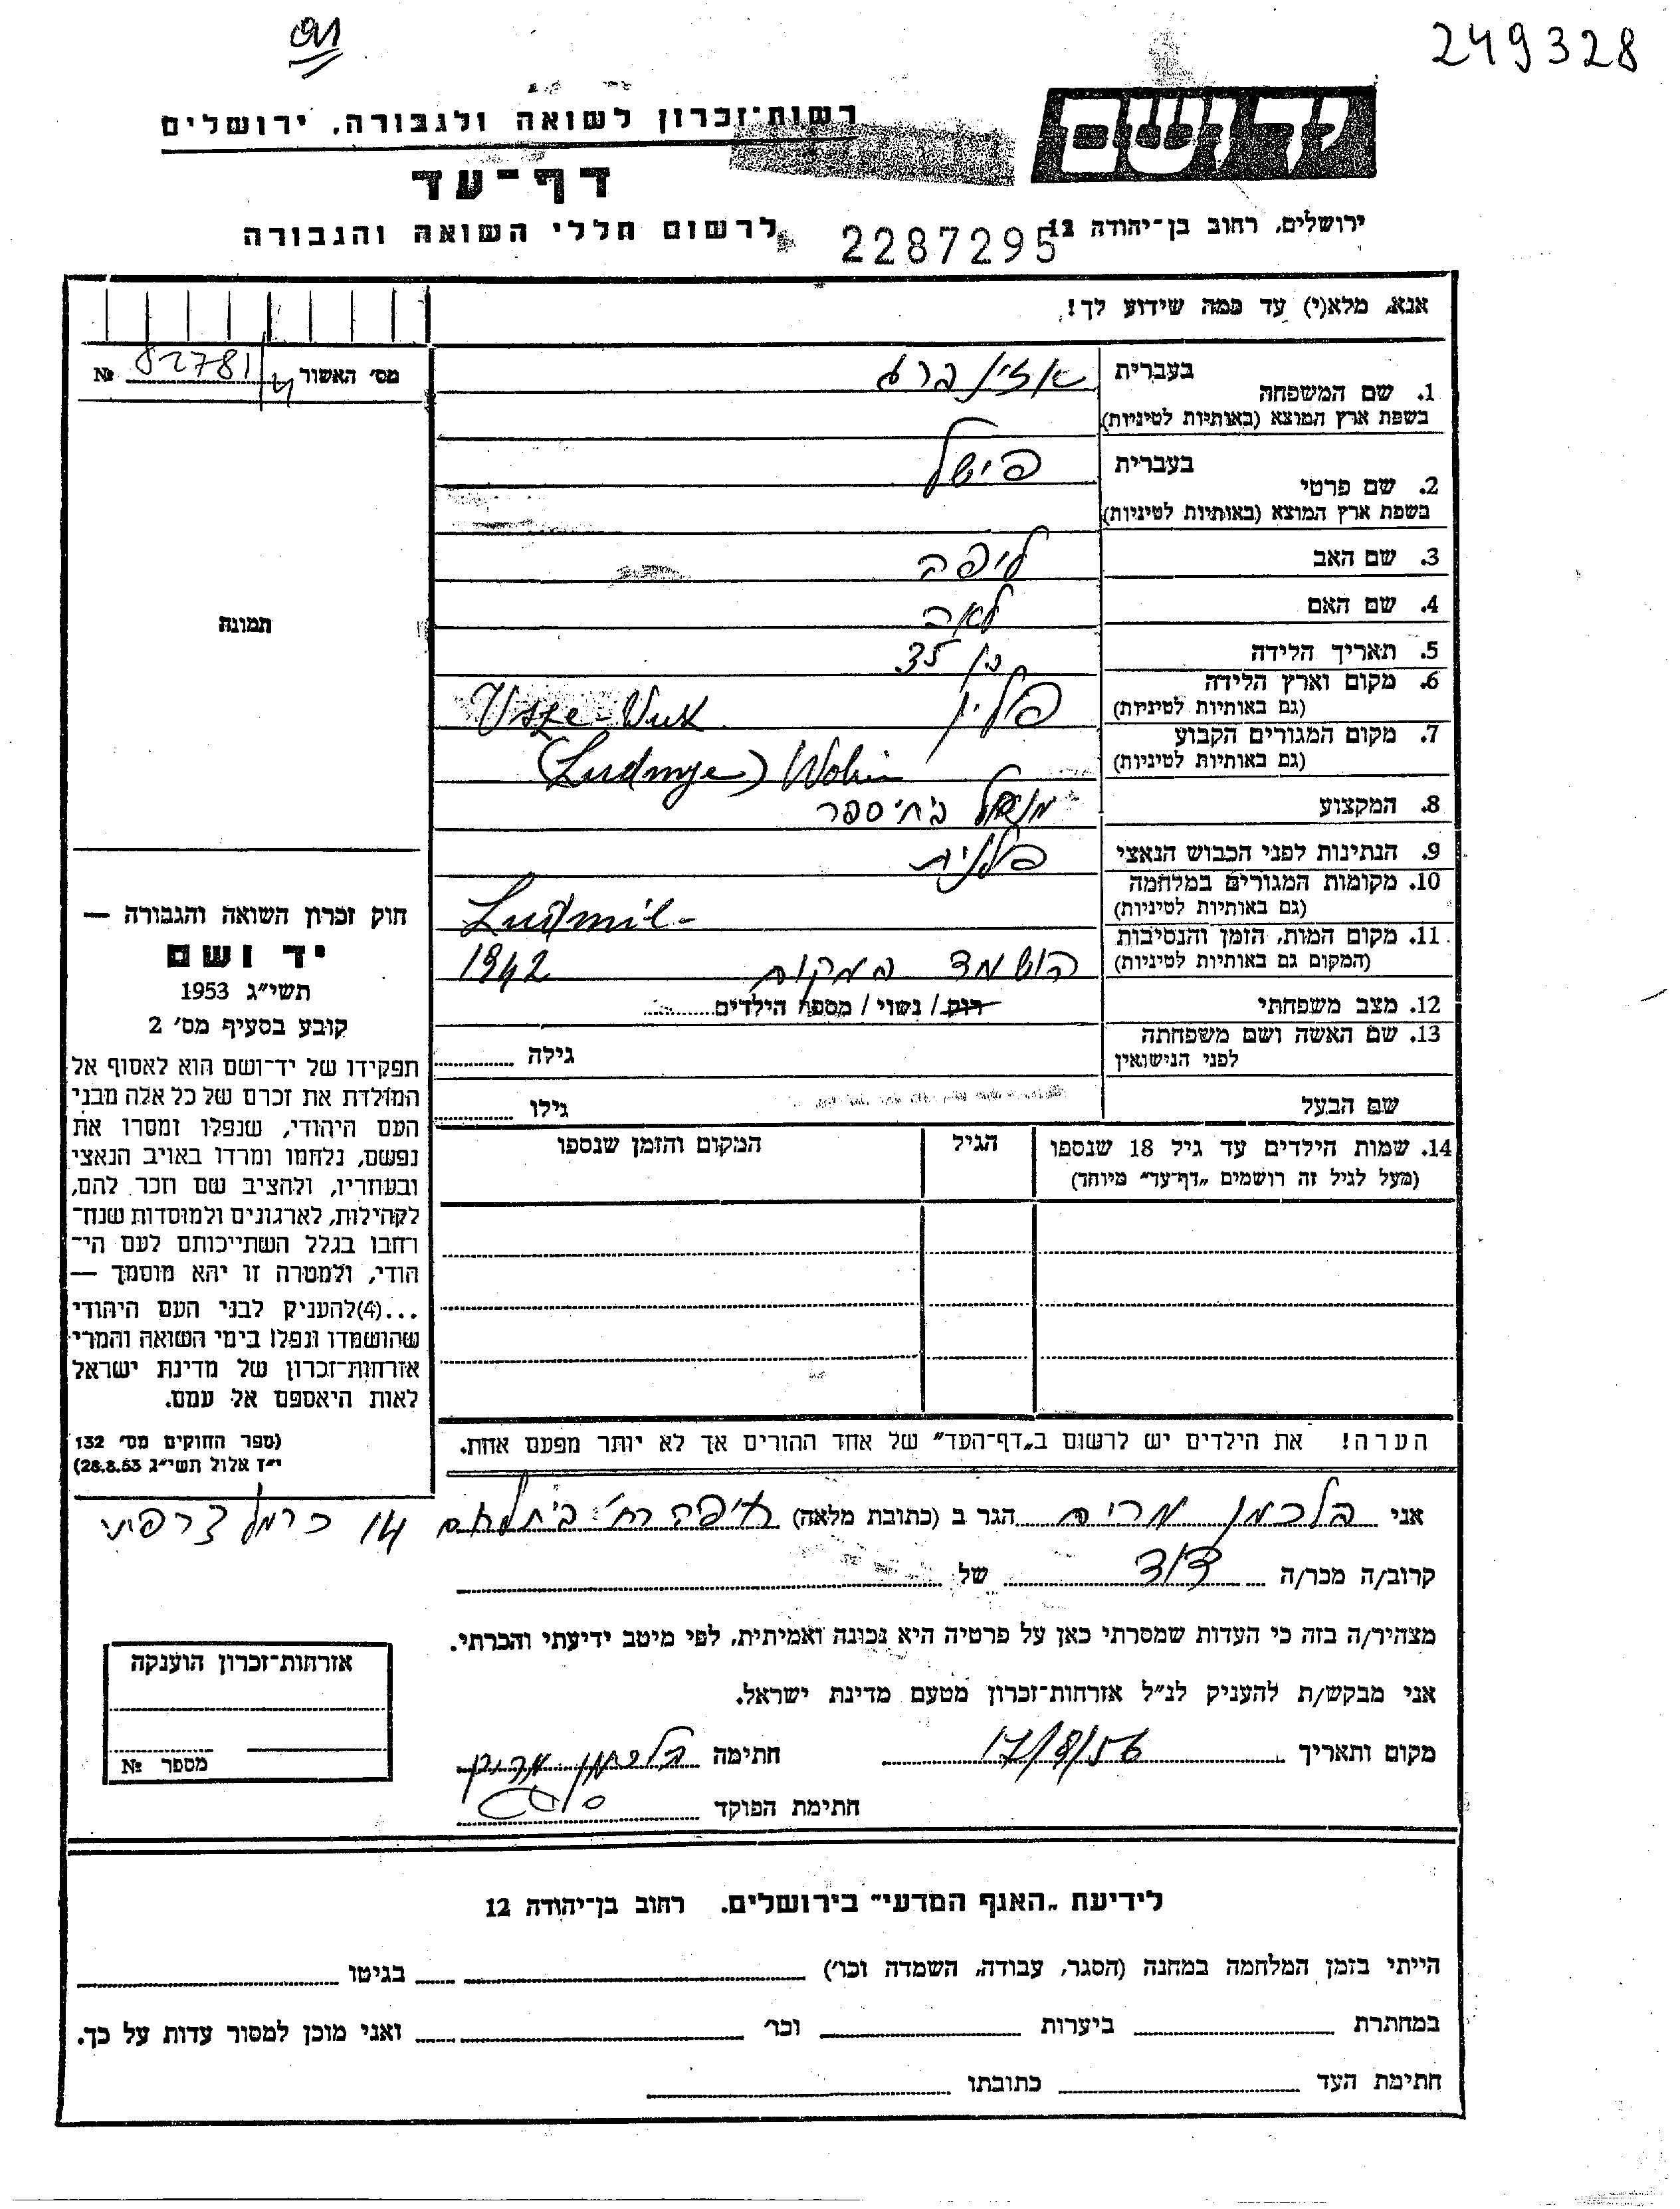 249328
רשות־זכרון לשואה ולגבורה, ירושלים
יד ושם
דף־עד
לרשום חללי השואה והגבורה
2287295
ירושלים, רחוב בן־יהודה 12
אנא, מלא(י) עד כמה שידוע לך!
מס׳ האשור
№ 82781
1. שם המשפחה
בעברית
בשפת ארץ המוצא (באותיות לטיניות)
2. שם פרטי
בעברית
פישל
בשפת ארץ המוצא (באותיות לטיניות)
3. שם האב
ליפה
4. שם האם
לאה
5. תאריך הלידה
בן 35
6. מקום וארץ הלידה
(גם באותיות לטיניות)
פולין
7. מקום המגורים הקבוע
(גם באותיות לטיניות)
8. המקצוע
9. הנתינות לפני הכבוש הנאצי
פולנית
10. מקומות המגורים במלחמה
(גם באותיות לטיניות)
11. מקום המות, הזמן והנסיבות
(המקום גם באותיות לטיניות)
הושמד במקום 1942
12. מצב משפחתי
רוק / נשוי / מספר הילדים
13. שם האשה ושם משפחתה
לפני הנישואין
גילה
שם הבעל
גילו
14. שמות הילדים עד גיל 18 שנספו
(מעל לגיל זה רושמים „דף־עד״ מיוחד)
הגיל
המקום והזמן שנספו
הערה! את הילדים יש לרשום ב„דף־העד״ של אחד ההורים אך לא יותר מפעם אחת.
תמונה
חוק זכרון השואה והגבורה —
יד ושם
תשי״ג 1953
קובע בסעיף מס׳ 2
תפקידו של יד־ושם הוא לאסוף אל
המולדת את זכרם של כל אלה מבני
העם היהודי, שנפלו ומסרו את
נפשם, נלחמו ומרדו באויב הנאצי
ובעוזריו, ולהציב שם וזכר להם,
לקהילות, לארגונים ולמוסדות שנח־
רחבו בגלל השתייכותם לעם הי־
הודי, ולמטרה זו יהא מוסמך —
...(4)להעניק לבני העם היהודי
שהושמדו ונפלו בימי השואה והמרי
אזרחות־זכרון של מדינת ישראל
לאות היאספם אל עמם.
(ספר החוקים מס׳ 132
י״ז אלול תשי״ג 28.8.53)
אני בלכמן מרים הגר ב (כתובת מלאה) חיפה רח׳ בית לחם 14 כרמל צרפתי
קרוב/ה מכר/ה דוד של
מצהיר/ה בזה כי העדות שמסרתי כאן על פרטיה היא נכונה ואמיתית, לפי מיטב ידיעתי והכרתי.
אני מבקש/ת להעניק לנ״ל אזרחות־זכרון מטעם מדינת ישראל.
מקום ותאריך 17/8/56 חתימה בלכמן מרים
חתימת הפוקד
אזרחות־זכרון הוענקה
מספר №
לידיעת „האגף המדעי״ בירושלים. רחוב בן־יהודה 12
הייתי בזמן המלחמה במחנה (הסגר, עבודה, השמדה וכו׳) בגיטו
במחתרת ביערות וכו׳ ואני מוכן למסור עדות על כך.
חתימת העד כתובתו